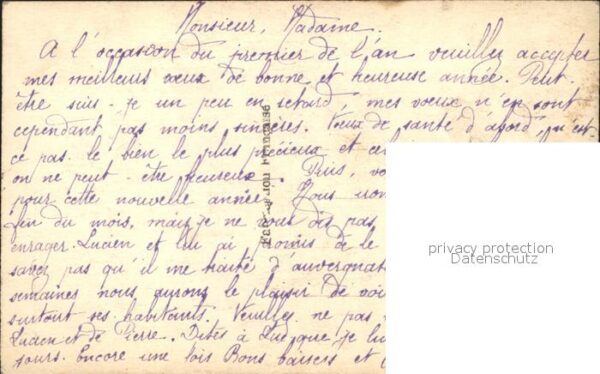 Monsieur, Madame.
A l'occasion du premier de l'an veuillez accepter
mes meilleurs vœux de bonne et heureuse année. Peut-
être suis-je un peu en retard, mes vœux n'en sont
cependant pas moins sincères. Vœux de santé d'abord, n'est
ce pas le bien le plus précieux et
on ne peut-être heureux. Puis,
pour cette nouvelle année. Nous
fin du mois, mais je ne vous dis pas
enrager Lucien et lui ai promis de le
savez pas qu'il me traite d'auvergnat
semaines nous aurons le plaisir de
surtout ses habitants. Veuillez ne pas
Lucien et de Pierre. Dites à Luc que je
jours. Encore une fois Bons baisers et
privacy protection
Datenschutz